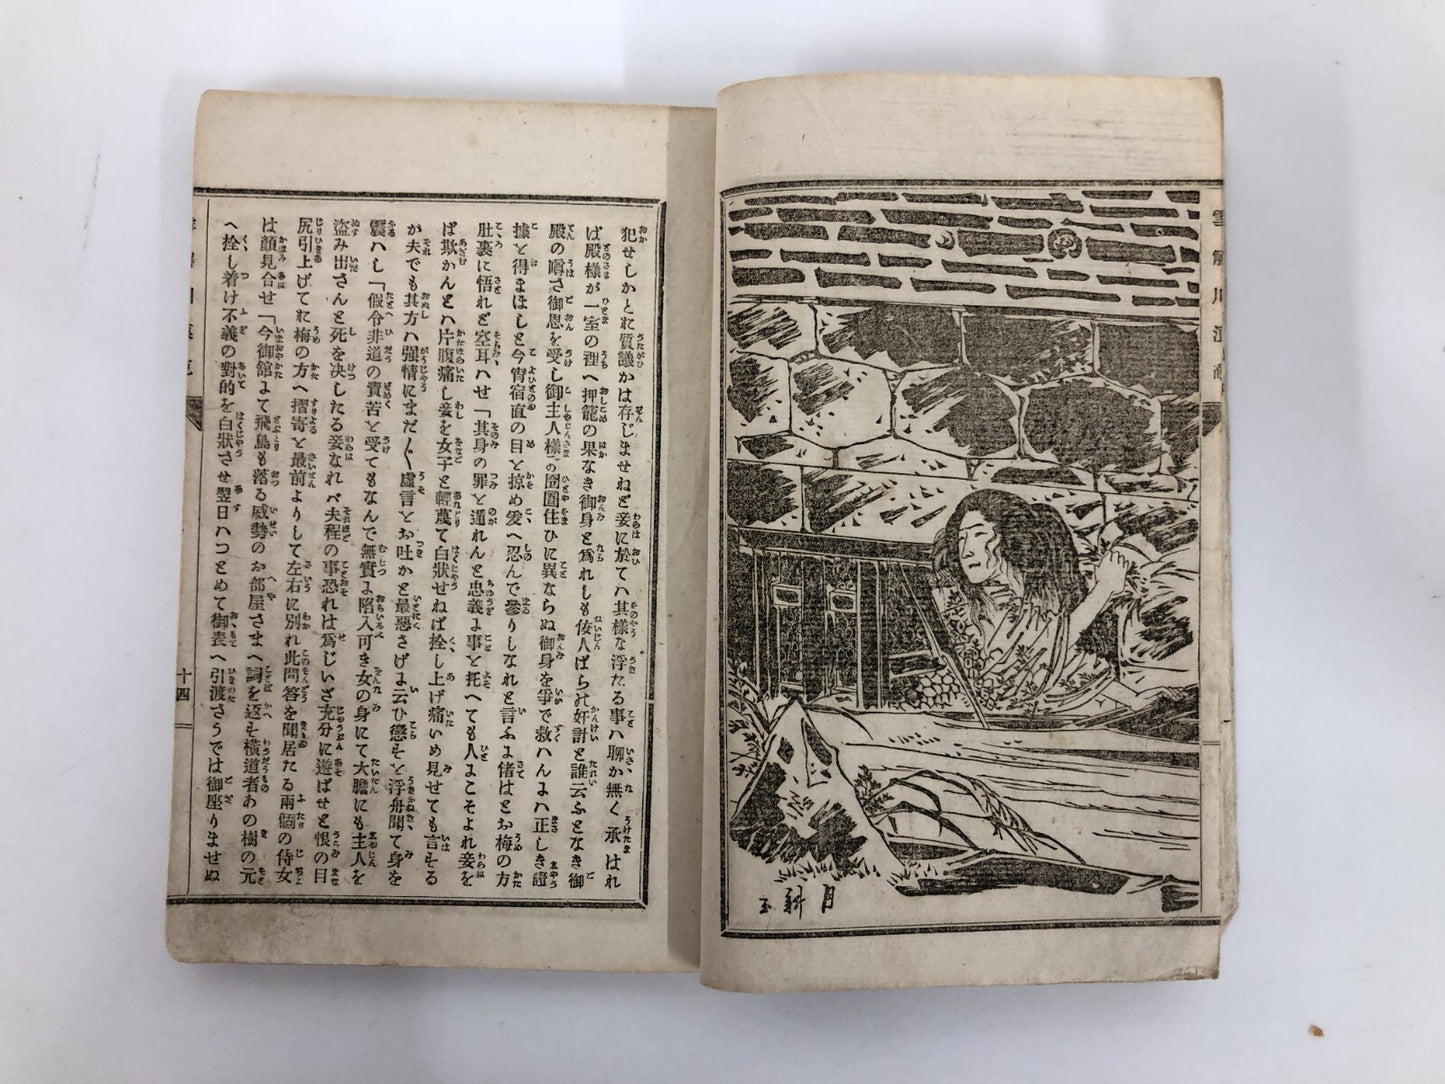 月耕
玉
犯せしかとれ質議かは存じませねど妾に於てハ其樣な浮たる事ハ聊か無く承はれ
ば殿樣が一室の裡へ押籠の果なき御身と爲れしも佞人ばらの奸計と誰云ふとなき御
殿の噂さ御恩を受し御主人樣が囹圄住ひに異ならぬ御身を爭で救ハんよハ正しき證
據と得まほしと今宵宿直の目と掠め爰へ忍んで參りしなれと言ふよ偖はとお梅の方
肚裏に悟れど空耳ハせ「其身の罪と遁れんと忠義よ事と托へても人よこそよれ妾を
ば欺かんとハ片腹痛し妾を女子と輕蔑て白狀せねば拴し上げ痛いめ見せても言する
か夫でも其方ハ强情にまだ〱虛言とお吐かと最惡さげよ云ひ懲すと浮舟聞て身を
震ハし「假令非道の責苦と受てもなんで無實よ陷入可き女の身にて大膽にも主人を
盜み出さんと死を決したる妾なれバ夫程の事恐れは爲じいざ充分に遊ばせと恨の目
尻引上げてれ梅の方へ摺寄と最前よりして左右に別れ此問答を聞居たる兩個の侍女
は顏見合せ「今御館よて飛鳥も落る威勢のお部屋さまへ詞を返す橫道者あの樹の元
へ拴し着け不義の對的を白狀させ翌日ハつとめて御表へ引渡さうでは御座りませぬ
十四